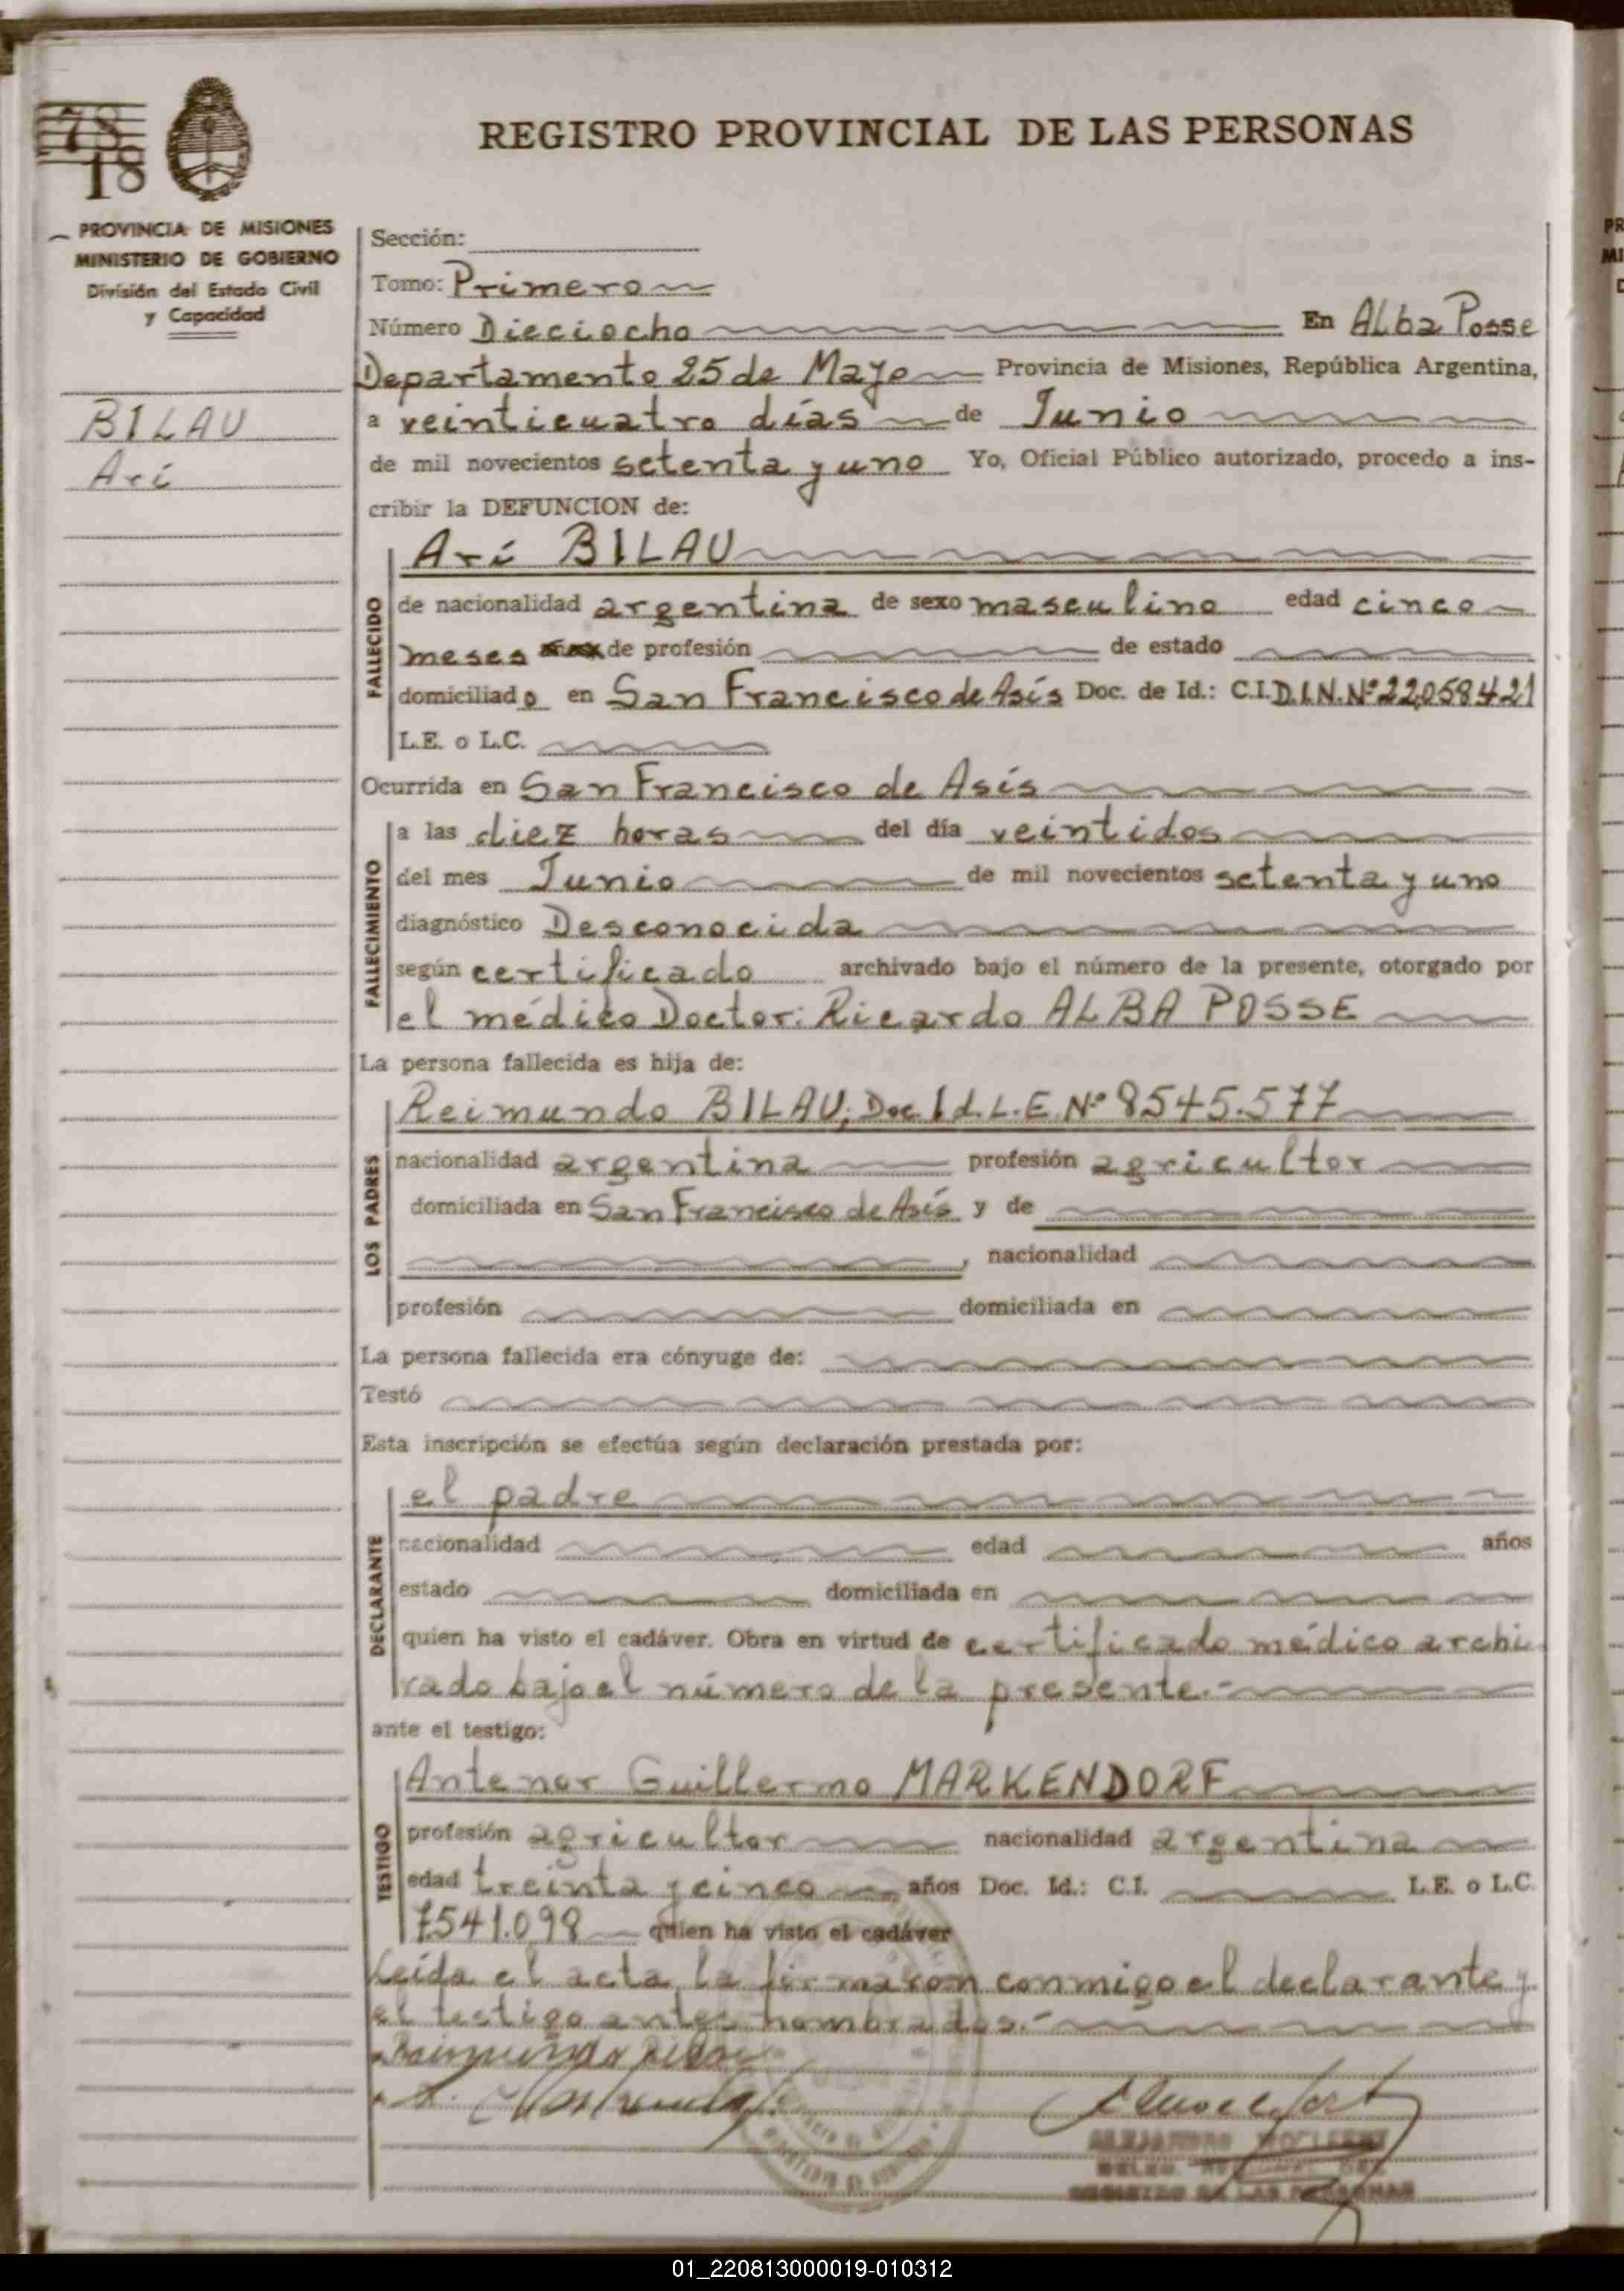 REGISTRO PROVINCIAL DE LAS PERSONAS
18
PROVINCIA DE MISIONES
MINISTERIO DE GOBIERNO
División del Estado Civil
y Capacidad
BILAU
Ari
Sección:
Tomo: Primero
Número Dieciocho En Alba Posse
Departamento 25 de Mayo Provincia de Misiones, República Argentina,
a veinticuatro días de Junio
de mil novecientos setenta y uno Yo, Oficial Público autorizado, procedo a ins-
cribir la DEFUNCION de:
Ari BILAU
FALLECIDO
de nacionalidad argentina de sexo masculino edad cinco
meses de profesión de estado
domiciliado en San Francisco de Asís Doc. de Id.: C.I. D.I.N. Nº 22.058421
L.E. o L.C.
Ocurrida en San Francisco de Asís
FALLECIMIENTO
a las diez horas del día veintidos
del mes Junio de mil novecientos setenta y uno
diagnóstico Desconocida
según certificado archivado bajo el número de la presente, otorgado por
el médico Doctor: Ricardo ALBA POSSE
La persona fallecida es hija de:
LOS PADRES
Reimundo BILAU; Doc. Id. L.E. Nº 8545.577
nacionalidad argentina profesión agricultor
domiciliada en San Francisco de Asís y de
, nacionalidad
profesión domiciliada en
La persona fallecida era cónyuge de:
Testó
Esta inscripción se efectúa según declaración prestada por:
DECLARANTE
el padre
nacionalidad edad años
estado domiciliada en
quien ha visto el cadáver. Obra en virtud de certificado médico archi
vado bajo el número de la presente.-
ante el testigo:
TESTIGO
Antenor Guillermo MARKENDORF
profesión agricultor nacionalidad argentina
edad treinta y cinco años Doc. Id.: C.I. L.E. o L.C.
7541.098 quien ha visto el cadáver
Leída el acta, la firmaron conmigo el declarante y
el testigo antes nombrados.-
ALEJANDRO
REGISTRO DE LAS PERSONAS
01_220813000019-010312